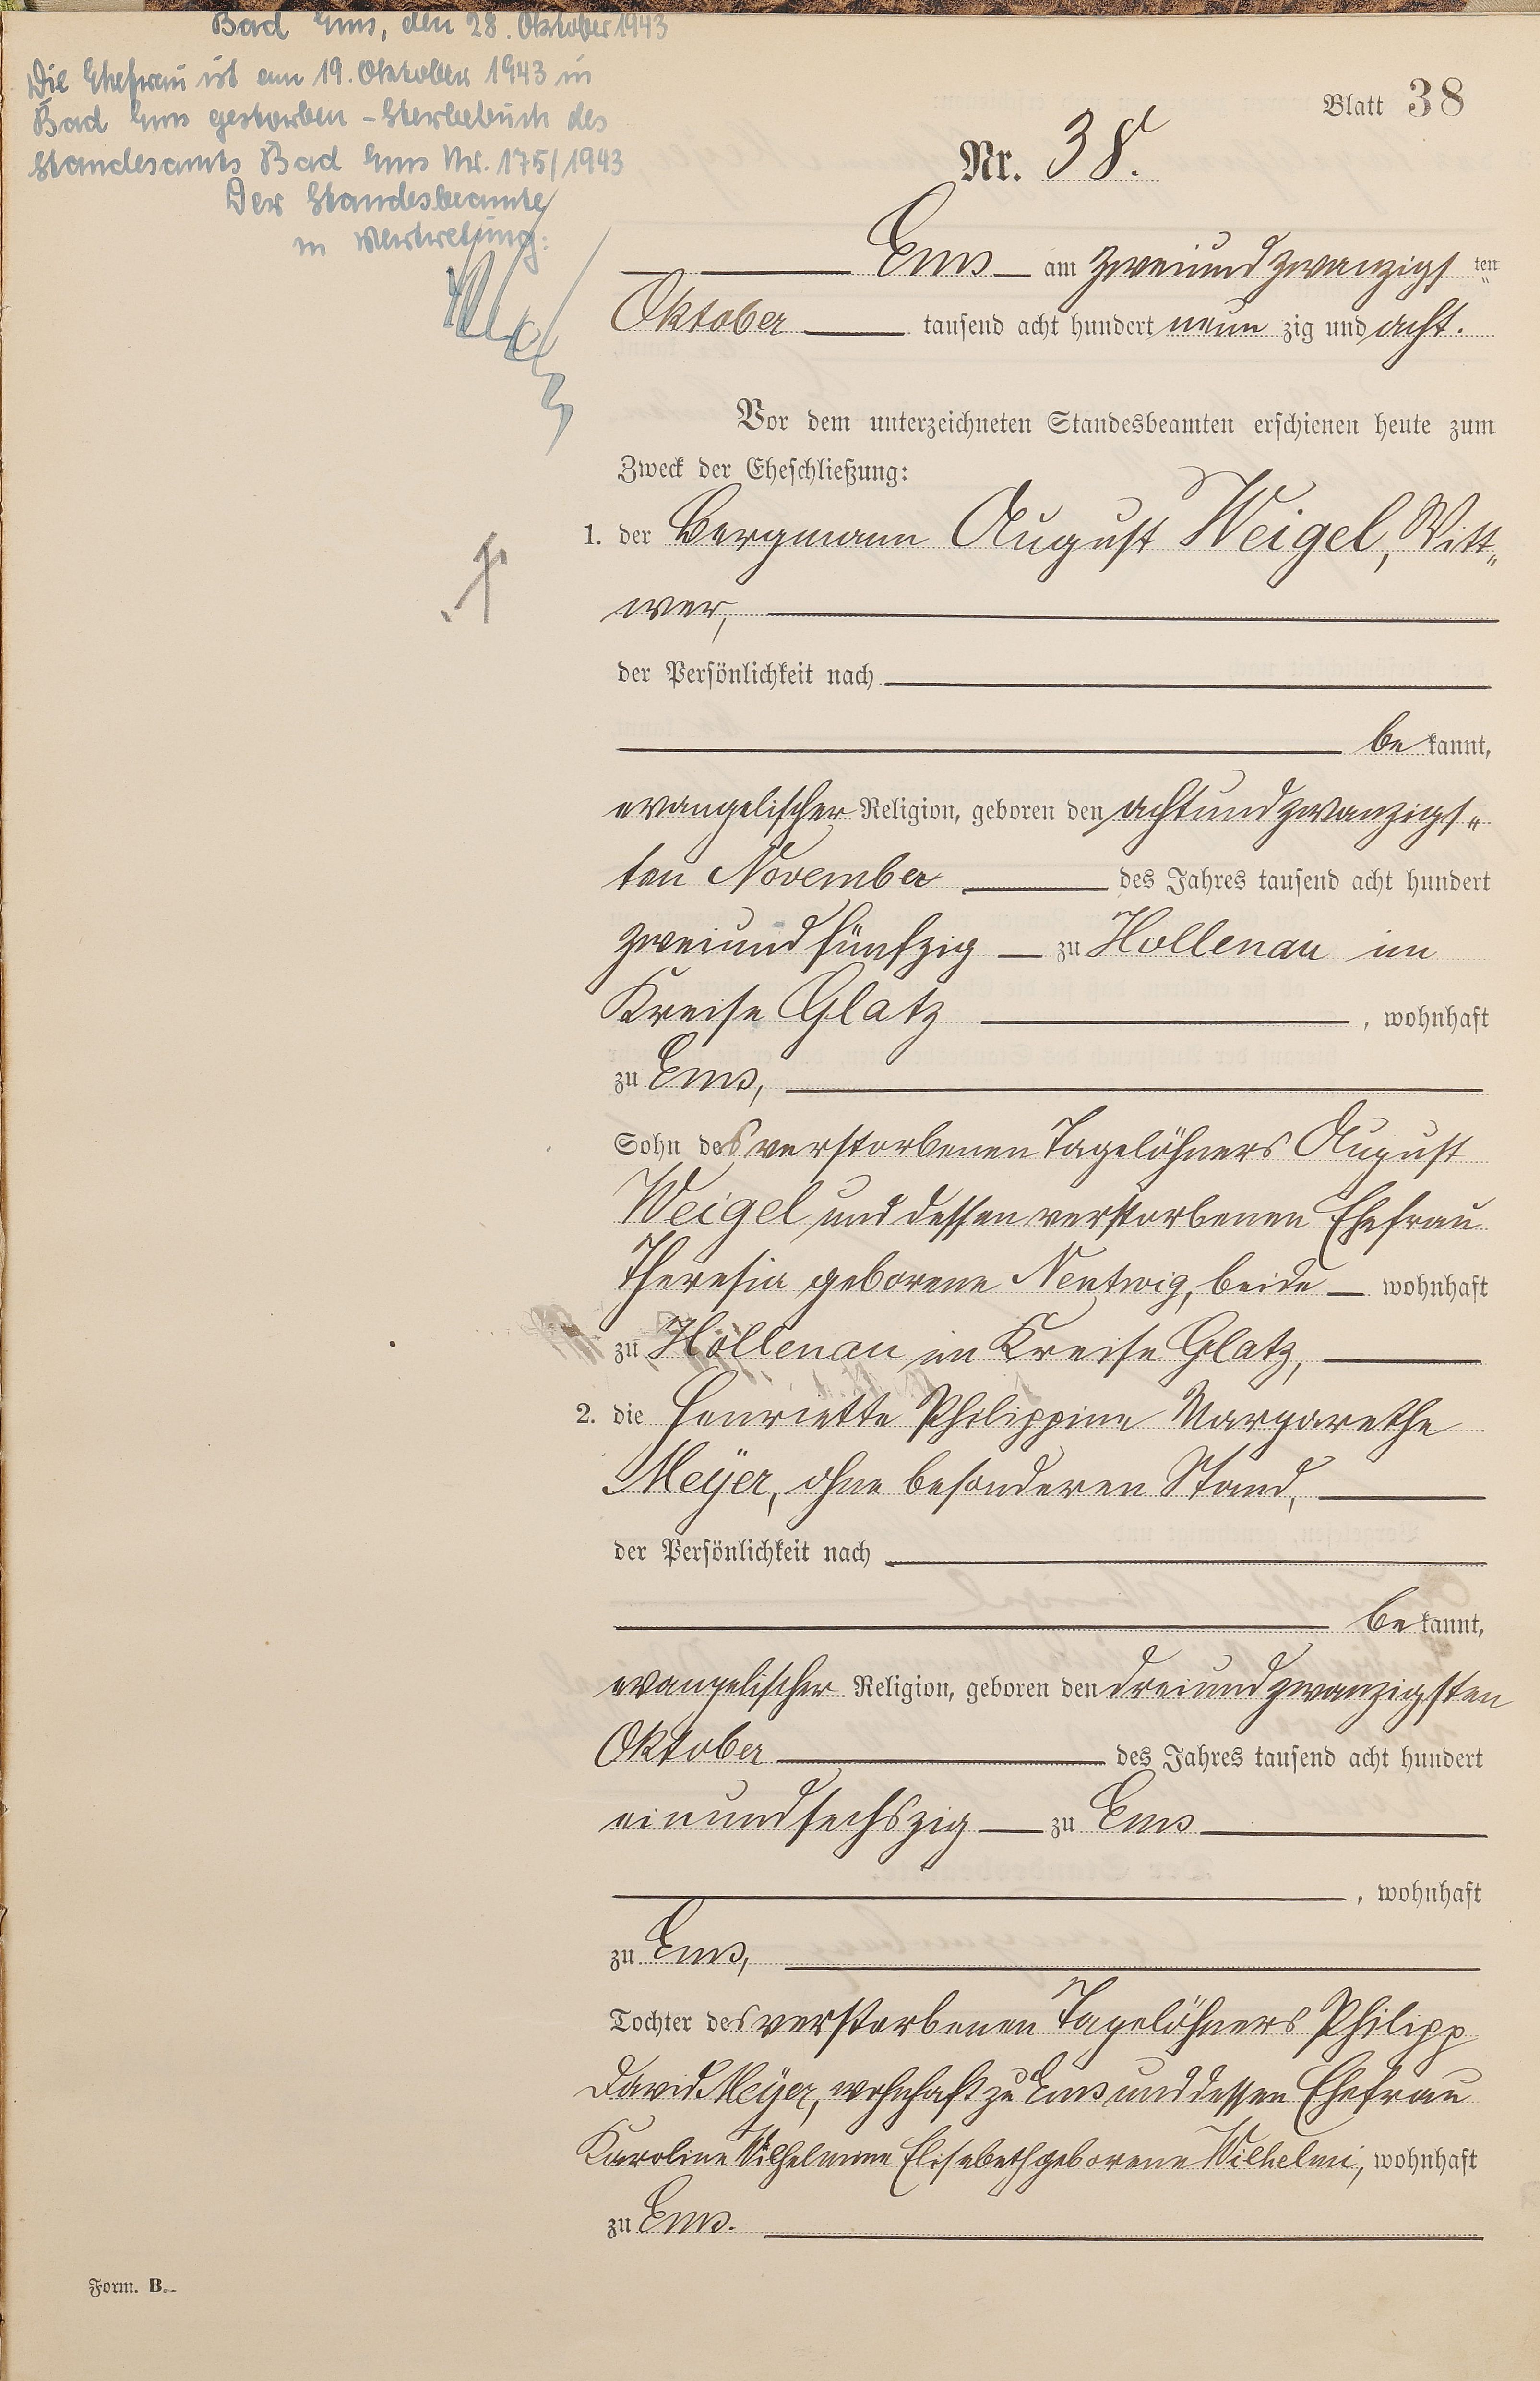 Bad Ems, den 28. Oktober 1943
Die Ehefrau ist am 19. Oktober 1943 in
Bad Ems gestorben - Sterbebuch des
Standesamts Bad Ems Nr. 175/1943
Der Standesbeamte
in Vertretung:
Blatt 38
Nr. 38.
Ems am zweiundzwanzigsten
Oktober tausend acht hundert neun zig und acht.
Vor dem unterzeichneten Standesbeamten erschienen heute zum
Zweck der Eheschließung:
1. der Bergmann August Weigel, Witt„
wer,
der Persönlichkeit nach
be kannt,
evangelischer Religion, geboren den achtundzwanzigs„
ten November des Jahres tausend acht hundert
zweiundfünfzig zu Hollenau im
Kreise Glatz , wohnhaft
zu Ems,
Sohn des verstorbenen Tagelöhners August
Weigel und dessen verstorbenen Ehefrau
Theresia geborene Nentwig, beide wohnhaft
zu Hollenau im Kreise Glatz,
2. die Henriette Philippine Margarethe
Meÿer, ohne besonderen Stand,
der Persönlichkeit nach
be kannt,
evangelischer Religion, geboren den dreiundzwanzigsten
Oktober des Jahres tausend acht hundert
einundsechszig zu Ems
, wohnhaft
zu Ems,
Tochter des verstorbenen Tagelöhners Philipp
David Meÿer, wohnhaft zu Ems und dessen Ehefrau
Karoline Wilhelmine Elisabeth geborene Wilhelmi, wohnhaft
zu Ems.
Form. B.